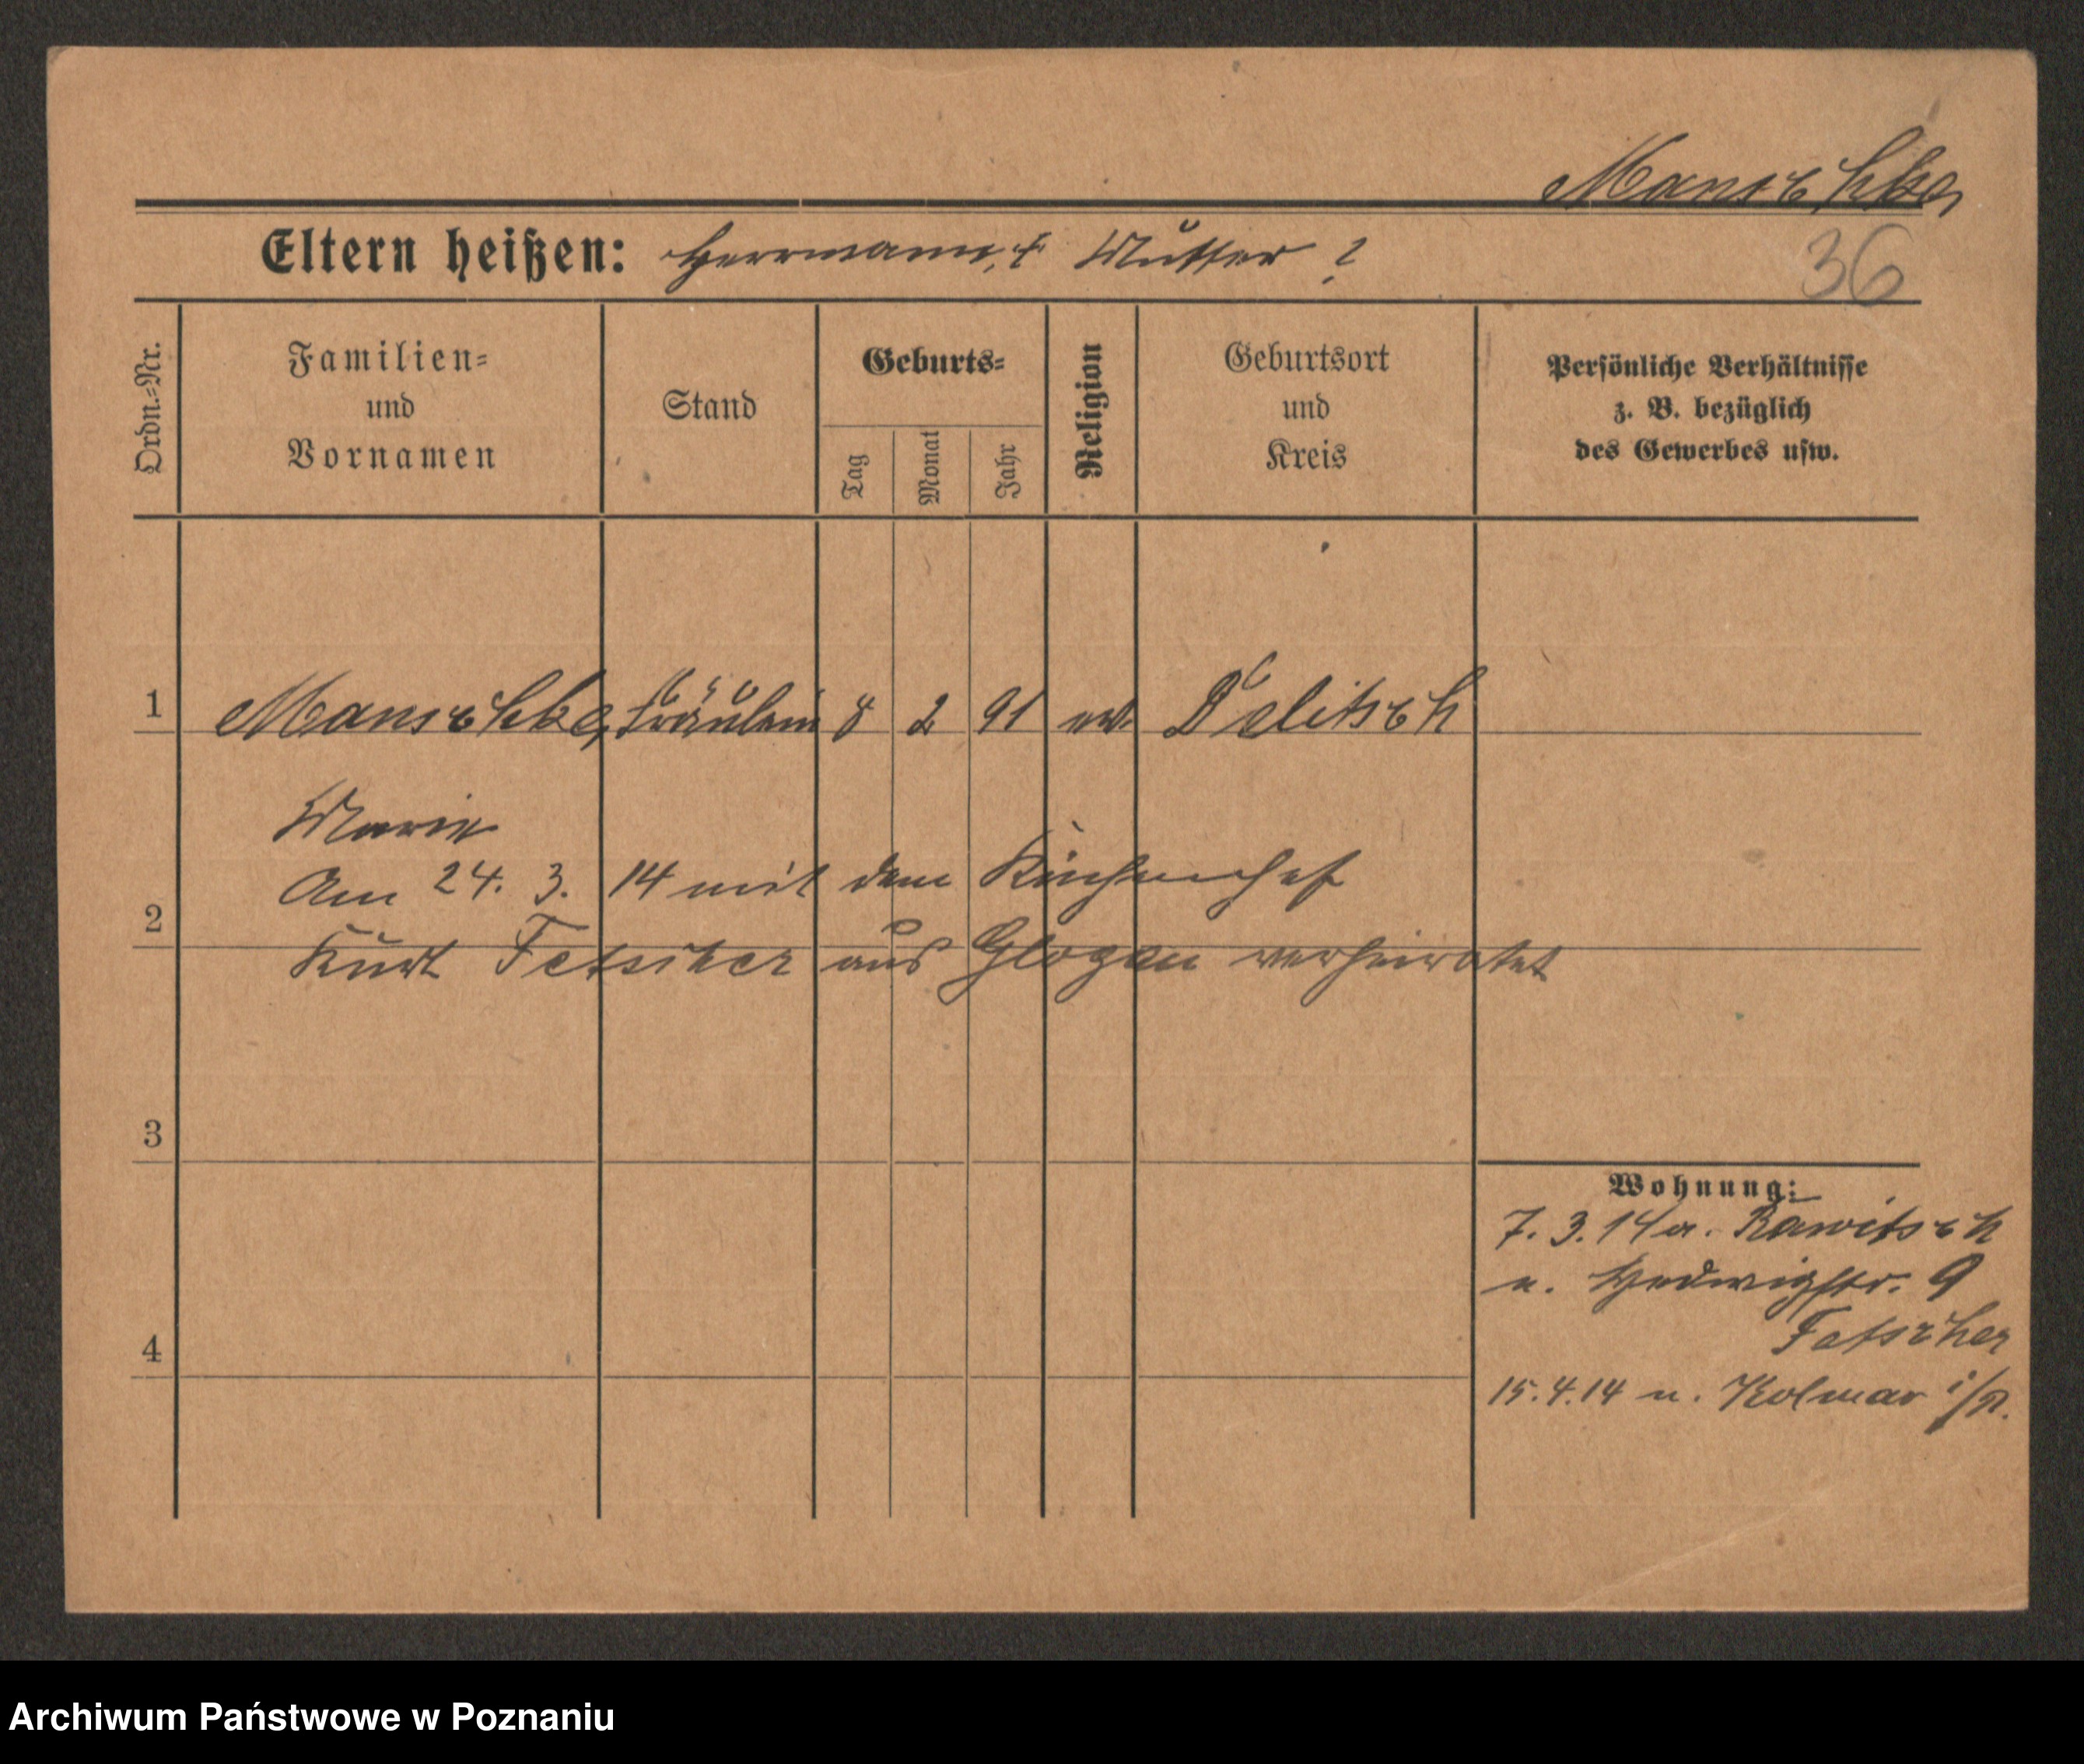 Manschke,
Eltern heißen: Herrmann, † Mutter ?
36
Ordn.=Nr.
Familien=
und
Vornamen
Stand
Geburts=
Tag
Monat
Jahr
Religion
Geburtsort
und
Kreis
Persönliche Verhältnisse
z. B. bezüglich
des Gewerbes usw.
1 Manschke, Fräulein 8 2 91 ev. Delitsch
Marie
Am 24. 3. 14 mit dem Küchenchef
2
Kurt Fetscher aus Glogau verheiratet
3
Wohnung:
7. 3. 14 a. Rawitsch
n. Hedwigstr. 9
Fetscher
4
15.4.14 n. Kolmar i/P.
Archiwum Państwowe w Poznaniu